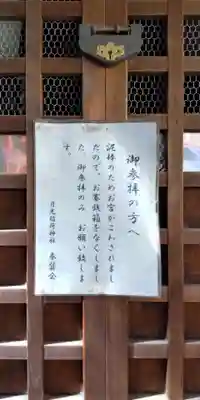 御参拝の方へ
泥棒のためお宮がこわされまし
たので、お賽銭箱をなくしまし
た、御参拝のみ お願い致しま
す。
月光稲荷神社 奉賛会